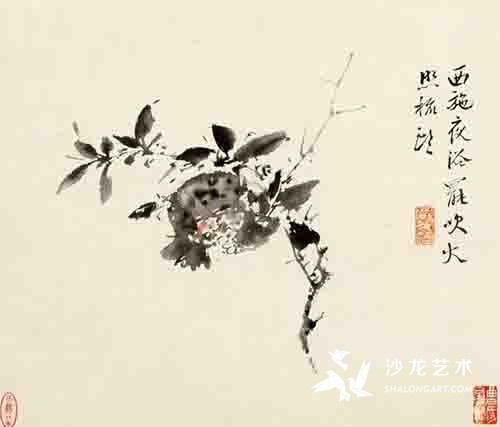 西施夜浴罷吹火
照梳頭
沙龙艺术
SHALONGART.COM